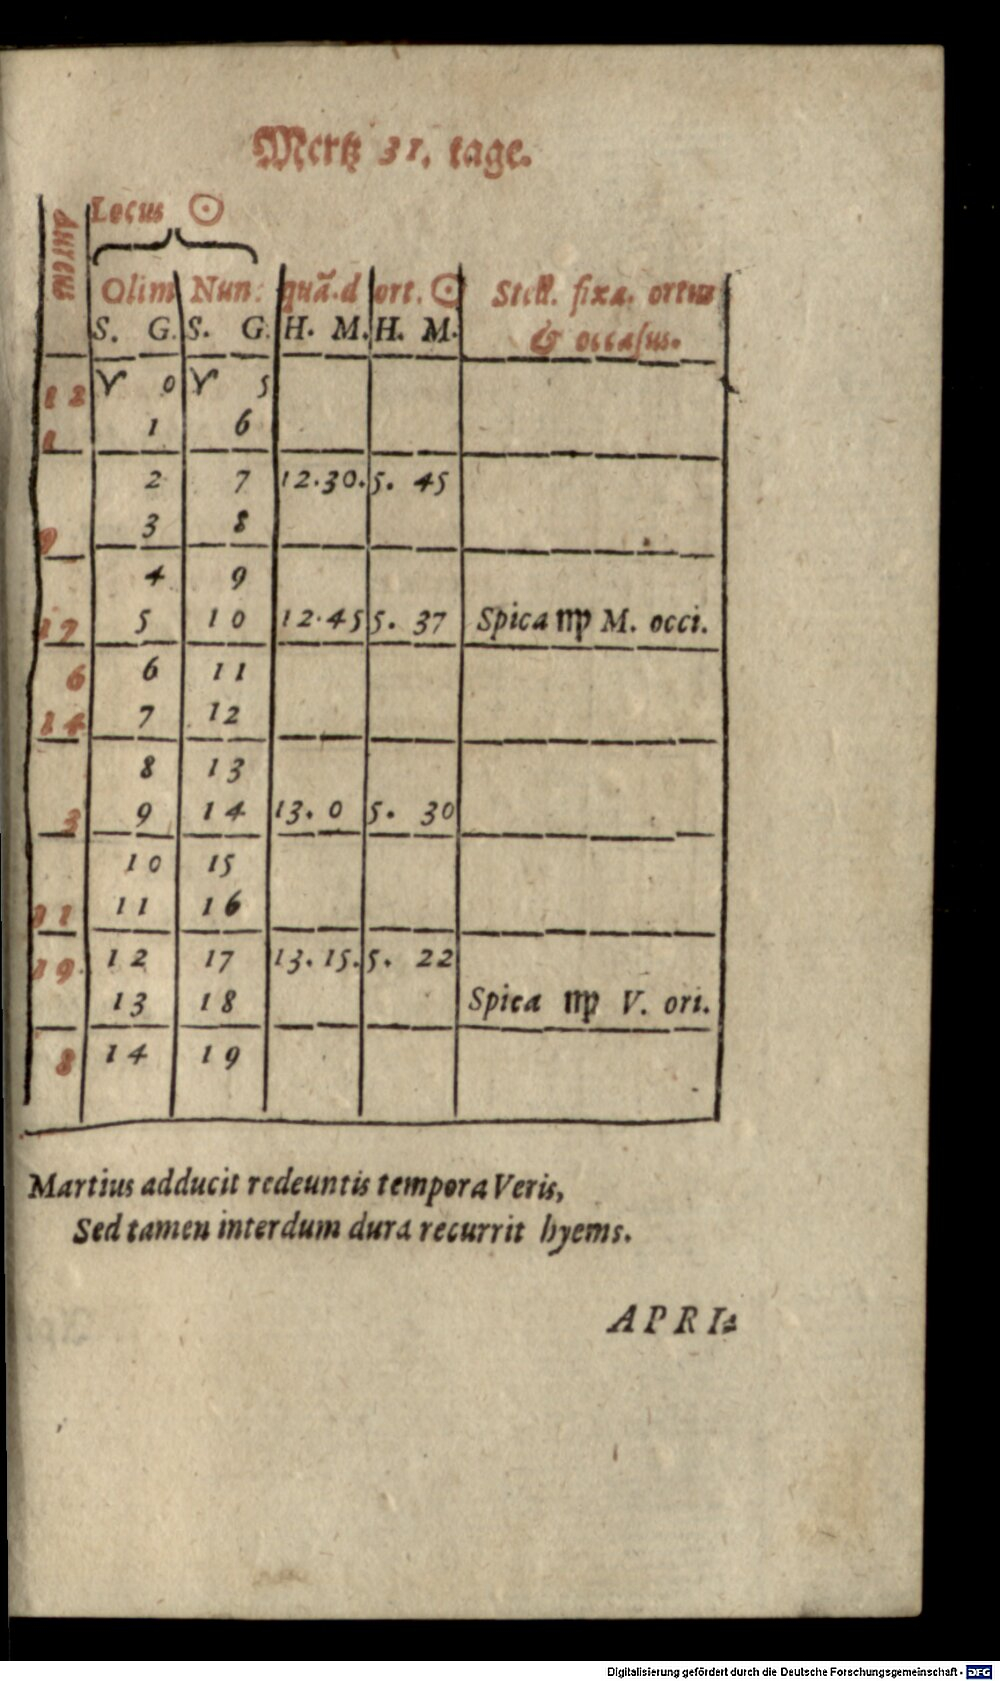 Mertz 31. tage.
Aureus
Locus ☉
Olim Nun: quā.d ort. ☉ Stell. fixa. ortus
S. G. S. G. H. M. H. M. & occasus.
12 ♈ 0 ♈ 5
1 1 6
2 7 12.30. 5. 45
9 3 8
4 9
17 5 10 12.45 5. 37 Spica ♍ M. occi.
6 6 11
14 7 12
8 13
3 9 14 13. 0 5. 30
10 15
11 11 16
19. 12 17 13. 15. 5. 22
13 18 Spica ♍ V. ori.
8 14 19
Martius adducit redeuntis tempora Veris,
Sed tamen interdum dura recurrit hyems.
APRI=
Digitalisierung gefördert durch die Deutsche Forschungsgemeinschaft - DFG